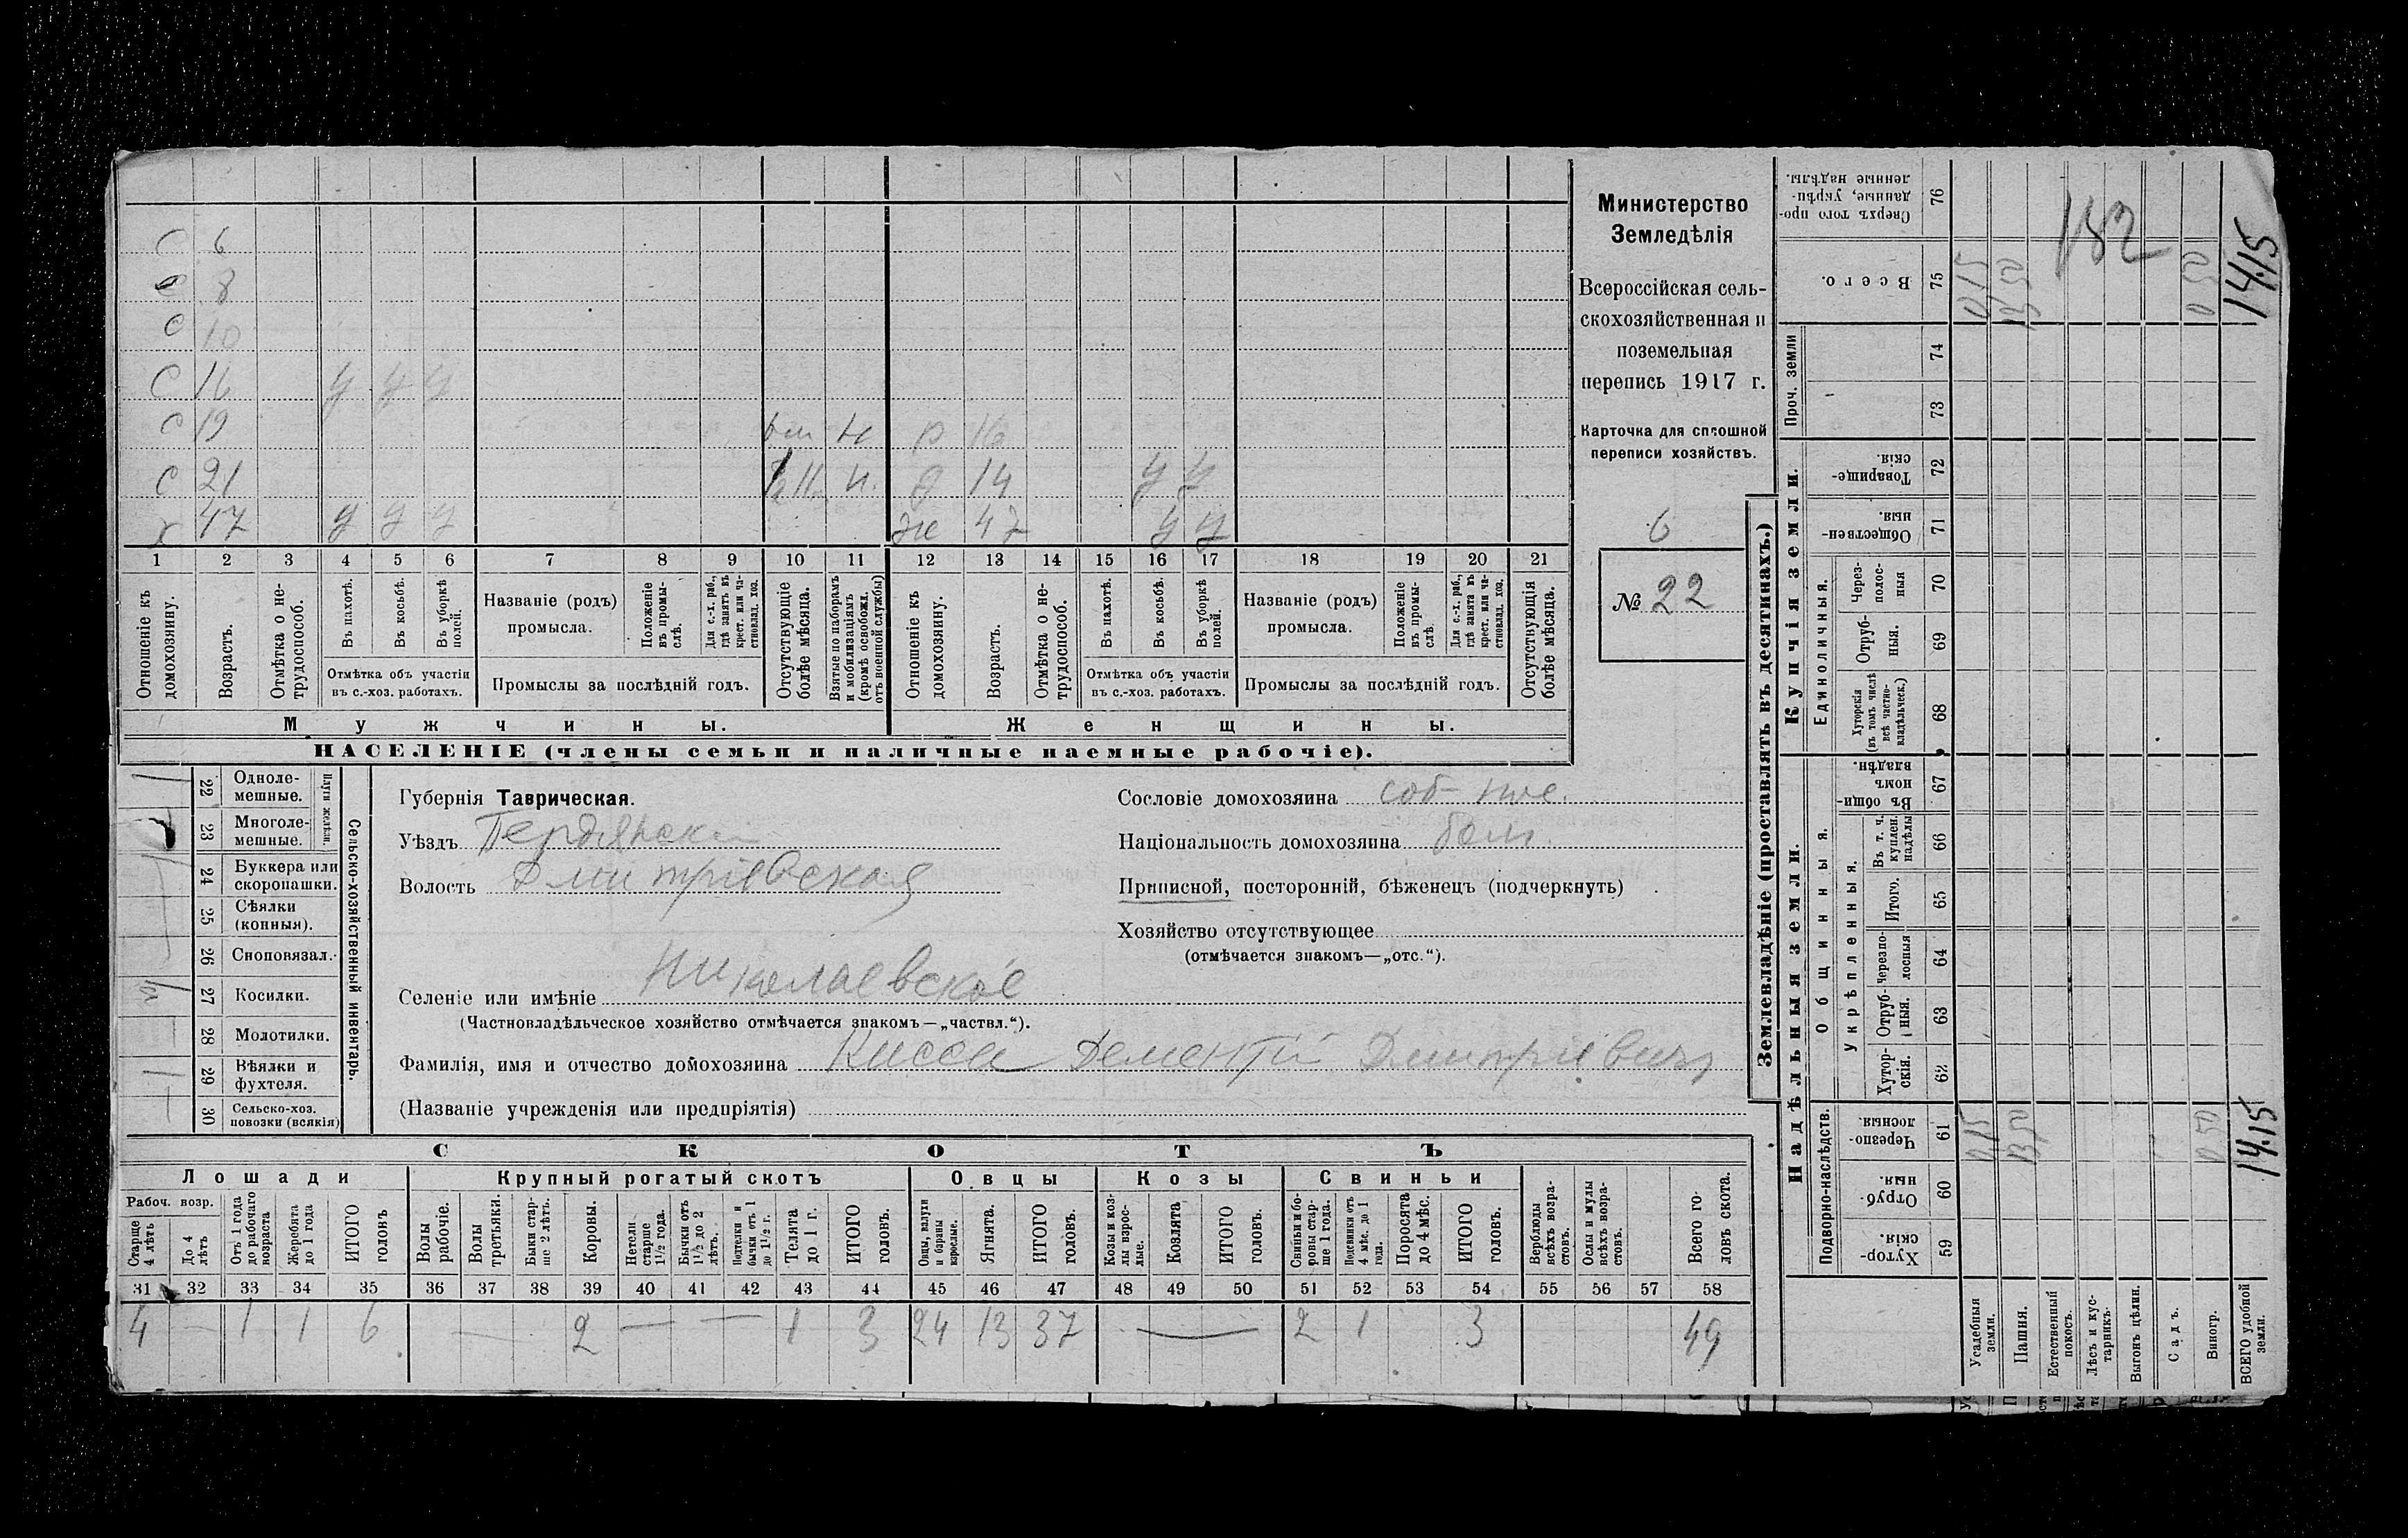 Министерство
Земледѣлія
Всероссійская сель-
скохозяйственная и
поземельная
перепись 1917 г.
Карточка для сплошной
переписи хозяйствъ.
6
№ 22
С 6
С 8
С 10
С 16 у у у
С 19 н 16
С 21 н. д 14 у у
х 47 у у у же 47 у у
1 2 3 4 5 6 7 8 9 10 11 12 13 14 15 16 17 18 19 20 21
Отношеніе къ домохозяину.
Возрастъ.
Отмѣтка о не-трудоспособ.
Въ пахотѣ.
Въ косьбѣ.
Въ уборкѣ полей.
Отмѣтка объ участіи въ с.-хоз. работахъ.
Названіе (родъ) промысла.
Положеніе въ промы-слѣ.
Для с.-х. раб., гдѣ занятъ въ крест. или ча-стновлад. хоз.
Промыслы за послѣдній годъ.
Отсутствующіе болѣе мѣсяца.
Взятые по наборамъ и мобилизаціямъ (кромѣ освобожд. отъ военной службы)
Отношеніе къ домохозяину.
Возрастъ.
Отмѣтка о не-трудоспособ.
Въ пахотѣ.
Въ косьбѣ.
Въ уборкѣ полей.
Отмѣтка объ участіи въ с.-хоз. работахъ.
Названіе (родъ) промысла.
Положеніе въ промы-слѣ.
Для с.-х. раб., гдѣ занята въ крест. или ча-стновлад. хоз.
Промыслы за послѣдній годъ.
Отсутствующія болѣе мѣсяца.
Мужчины. Женщины.
НАСЕЛЕНІЕ (члены семьи и наличные наемные рабочіе).
Сельско-хозяйственный инвентарь.
Плуги желѣзн.
22 Одноле-мешные. 1
23 Многоле-мешные.
24 Буккера или скоропашки.
25 Сѣялки (конныя).
26 Сноповязал.
27 Косилки.
28 Молотилки.
29 Вѣялки и фухтеля. 1
30 Сельско-хоз. повозки (всякія)
Губернія Таврическая.
Уѣздъ Бердянскій
Волость Дмитріевская
Селеніе или имѣніе Николаевское
(Частновладѣльческое хозяйство отмѣчается знакомъ—„частвл.“).
Фамилія, имя и отчество домохозяина Кисса Дементій Дмитріевичъ
(Названіе учрежденія или предпріятія)
Сословіе домохозяина соб-
Національность домохозяина бол.
Приписной, посторонній, бѣженецъ (подчеркнуть)
Хозяйство отсутствующее
(отмѣчается знакомъ—„отс.“).
СКОТЪ
Лошади Крупный рогатый скотъ Овцы Козы Свиньи
Рабоч. возр.
Старше 4 лѣтъ
До 4 лѣтъ
Отъ 1 года до рабочаго возраста
Жеребята до 1 года
ИТОГО головъ
Волы рабочіе.
Волы третьяки.
Быки стар-ше 2 лѣтъ.
Коровы.
Нетели старше 1½ года.
Бычки отъ 1½ до 2 лѣтъ.
Нетели и бычки отъ 1 до 1½ г.
Телята до 1 г.
ИТОГО головъ.
Овцы, валухи и бараны взрослые.
Ягнята.
ИТОГО головъ.
Козы и коз-лы взрос-лые.
Козлята
ИТОГО головъ.
Свиньи и бо-ровы стар-ше 1 года.
Подсвинки отъ 4 мѣс. до 1 года.
Поросята до 4 мѣс.
ИТОГО головъ.
Верблюды всѣхъ возра-стовъ.
Ослы и мулы всѣхъ возра-стовъ.
Всего го-ловъ скота.
31 32 33 34 35 36 37 38 39 40 41 42 43 44 45 46 47 48 49 50 51 52 53 54 55 56 57 58
4 — 1 1 6 — 2 — — 1 3 24 13 37 — 2 1 3 49
Землевладѣніе (проставлять въ десятинахъ.)
Надѣльныя земли. Купчія земли. Проч. земли
Подворно-наслѣдств. Общинныя. Укрѣпленныя. Единоличныя.
Хутор-скія. 59
Отруб-ныя. 60
Черезпо-лосныя 61
Хутор-скія. 62
Отруб-ныя. 63
Черезпо-лосныя 64
Итого. 65
Въ т. ч. куплен. надѣлы 66
Въ общин-номъ владѣн. 67
Хуторскія (въ томъ числѣ всѣ частно-владѣльческ.) 68
Отруб-ныя. 69
Через-полос-ныя 70
Обществен-ныя. 71
Товарище-скія. 72
73
74
Всего. 75
Сверхъ того про-данные, укрѣп-ленные надѣлы. 76
Усадебныя земли. 0,15 0,15
Пашня. 13,50 13,50
Естественный покосъ.
Лѣсъ и кус-тарникъ.
Выгонъ цѣлин.
Садъ.
Виногр. 0,50 0,50
ВСЕГО удобной земли. 14,15 14,15
182